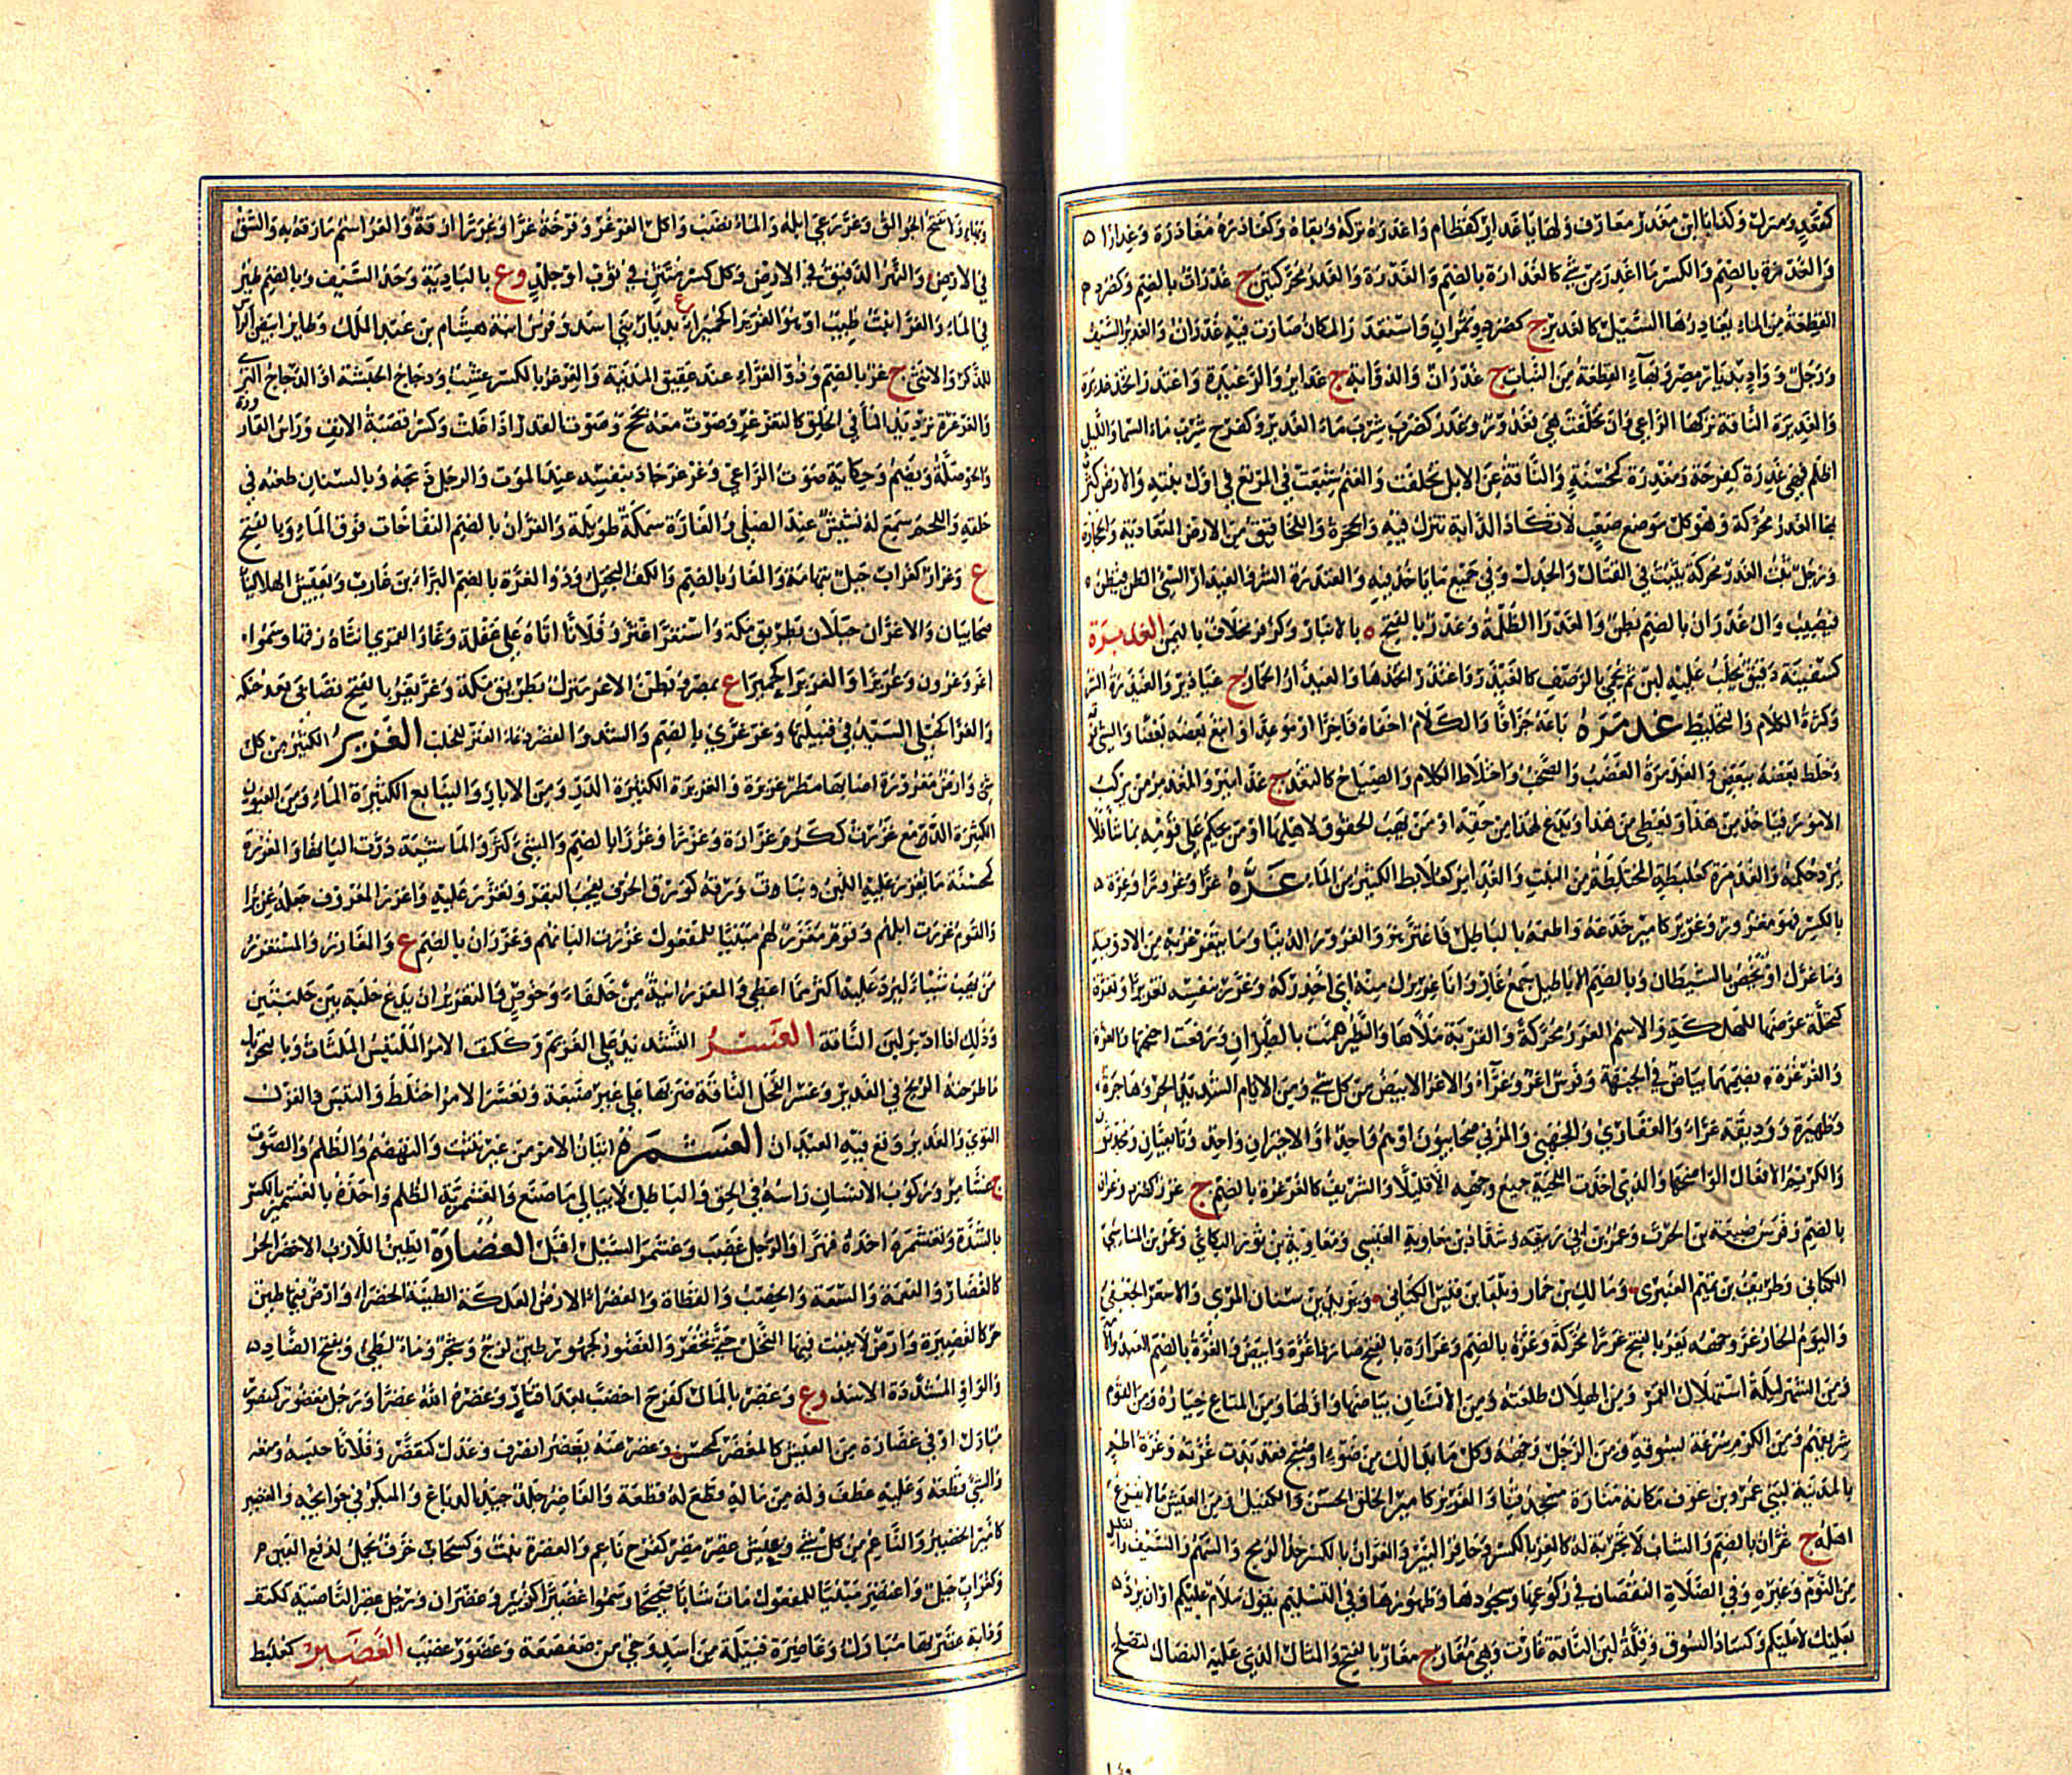 كمقعد ومنزل وكذا يا ابن مغدر معارف ولها يا غدار كقطام واغدره تركه وبقاه كغادره مغادرة وغدارا
والغدرة بالضم والكسر ما اغدر من شئ كالغدارة بالضم والغدرة والغدر محركتين ج غدرات بالضم وكصرد
القطعة من الماء يغادرها السيل كالغدير ج كصرد وتمران واستغدر المكان صارت فيه غدران والغدير السيف
ورجل وواد بديار مضر وبهاء القطعة من النبات ج غدران والذؤابة ج غدائر والرغيدة واغتدر اتخذ غديرة
والغديرة الناقة تركها الراعي وان تخلفت هي فغدور وغدر كضرب شرب ماء الغدير وكفرح شرب ماء السما والليل
اظلم فهي غدرة كفرحة ومغدرة كمحسنة والناقة عن الابل تخلفت والغنم شبعت في المرتع في اول نبته والارض كثر
بها الغدر محركة وهو كل موضع صعب لا تكاد الدابة تنفذ فيه والجحرة واللخاقيق من الارض المتعادية والحجارة
ورجل ثبت الغدر محركة يثبت في القتال والجدل وفي جميع ما ياخذ فيه والغيدرة الشر والغيدار السئ الظن فيظن
فيصيب وال غدران بالضم بطن والغدرا الظلمة وغدر بالفتح بالانبار وكزفر مخلاف باليمن الغديرة
كسفينة دقيق يحلب عليه لبن ثم يحمى بالرضف كالغيذر واغتذر اتخذها والغيذار الحمار ج غياذير والغيذرة الشر
وكثرة الكلام والتخليط غذمره باعه جزافا والكلام اخفاه فاخرا او موعدا او اتبع بعضه بعضا والشئ
وخلط بعضه ببعض والغذمرة الغضب والصخب واختلاط الكلام والصياح كالتغذمر ج غذامير والمغذمر من يركب
الامور فياخذ من هذا ويعطي من هذا ويدع لهذا من حقه او من يهب الحقوق لاهلها او من يحكم على قومه بما شا فلا
يرد حكمه والغذمرة كعلبطة المختلطة من النبت والغذامر كعلابط الكثير من الماء غره غرا وغرورا وغرة
بالكسر فهو مغرور وغرير كامير خدعه واطمعه بالباطل فاغتر هو والغرور الدنيا وما يتغرغر به من الادوية
وما غرك او يخص بالشيطان وبالضم الاباطيل جمع غار وانا غريرك منه اي احذركه وغرر بنفسه تغريرا وتغرة
كتحلة عرضها للهلكة والاسم الغرر محركة والقربة ملاها والطير همت بالطيران ورفعت اجنحتها والغرة
والغرغرة بضمهما بياض في الجبهة وفرس اغر وغراء والاغر الابيض من كل شئ ومن الايام الشديد الحر وهاجرة
وظهيرة ووديقة غراء والغفاري والجهني والمزني صحابيون او هم واحد او الاخيران واحد وتابعيان ومحدثون
والكريم الافعال الواضحها والذي اخذت اللحية جميع وجهه الا قليلا والشريف كالغرغرة بالضم ج غرر كصرد وغران
بالضم وفرس ضبيعة بن الحرث وعمر بن ابي ربيعة وشداد بن معاوية العبسي ومعاوية بن ثور البكائي وعمرو بن الناسي
الكناني وطريف بن تميم العنبري ومالك بن حمار وبلعا بن قيس الكناني ويزيد بن سنان المري والاسعر الجعفي
واليوم الحار وغر وجهه يغر بالفتح غررا محركة وغرة بالضم وغرارة بالفتح صار ذا غرة وابيض والغرة بالضم العبد والامة
ومن الشهر ليلة استهلال القمر ومن الهلال طلعته ومن الاسنان بياضها واولها ومن المتاع خياره ومن القوم
شريفهم ومن الكرم سرعة بسوقه ومن الرجل وجهه وكل ما بدا لك من ضوء او صبح فقد بدت غرته وغرة اطم
بالمدينة لبني عمرو بن عوف مكانه منارة مسجد قبا والغرير كامير الخلق الحسن والكفيل ومن العيش ما لا يفزع
اهله ج غران بالضم والشاب لا تجربة له كالغر بالكسر وحافر البئر والغرار بالكسر حد الرمح والسهم والسيف والقليل
من النوم وغيره وفي الصلاة النقصان في ركوعها وسجودها وطهورها وفي التسليم يقول سلام عليكم او ان يرد
بعليك لا عليكم وكساد السوق وقلة لبن الناقة غارت وهي مغار ج مغار بالفتح والمثال الذي عليه النصال لتصلح
وبهاء ولا تفتح الجوالق وغر رعى ابله والماء نضب واكل الغرغر وفرخه غرا وغرارا زقه والغر اسم ما زقه به والشق
في الارض والنهر الدقيق في الارض وكل كسر متثن في ثوب او جلد وع بالبادية وحد السيف وبالضم طير
في الماء والغراء نبت طيب او هو الغريراء كحميراء وع بديار بني اسد وفرس ابنة هشام بن عبد الملك وطاير ابيض الراس
للذكر والانثى ج غر بالضم وذو الغراء عند عقيق المدينة والغرغر بالكسر عشب ودجاج الحبشة او الدجاج البري
والغرغرة ترديد الماء في الحلق كالتغرغر وصوت معه بحح وصوت القدر اذا غلت وكسر قصبة الانف وراس القارورة
والحوصلة ويضم وحكاية صوت الراعي وغرغر جاد بنفسه عند الموت والرجل ذبحه وبالسنان طعنه في
حلقه واللحم سمع له نشيش عند الصلي والغارة سمكة طويلة والغران بالضم النفاخات فوق الماء وبالفتح
ع وغرار كغراب جبل بتهامة والغار بالضم والكف البخيل وذو الغرة بالضم البراء بن عازب ويعيش الهلالي
صحابيان والاغران جبلان بطريق مكة واستغر اغتر وفلانا اتاه على غفلة وغار القمري انثاه زقها وسموا
اغر وغرون وغريرا والغريراء كحميراء ع بمصر وبطن الاغر منزل بطريق مكة وغر يغر بالفتح تصابى بعد حنكه
والغرا الحبلى السيد في قبيلتها وغر غري بالضم والشد والقصر دعاء العنز للحلب الغزير الكثير من كل
شئ وارض مغزورة اصابها مطر غزيرة والغزيرة الكثيرة الدر ومن الابار والينابيع الكثيرة الماء ومن العيون
الكثيرة الدمع غزرت ككرم غزارة وغزرا وغزرا بالضم والشئ كثر والماشية درت البانها والمغزرة
كمحسنة ما يغزر عليه اللبن ونبات ورقه كورق الحرف يعجب البقر وتغزر عليه واغزر المعروف جعله غزيرا
والقوم غزرت ابلهم وقوم مغزر لهم مبنيا للمفعول غزرت البانهم وغزران بالضم ع والغازر والمستغزر
من يهب شيئا ليرد عليه اكثر مما اعطى والغزر انية من حلفاء وخوص والتغزير ان يدع حلبة بين حلبتين
وذلك اذا ادبر لبن الناقة الغسر التشديد على الغريم وككتف الامر الملتبس الملتاث وبالتحريك
ما طرحته الريح في الغدير وغسر الفحل الناقة ضربها على غير ضبعة وتغسر الامر اختلط والتبس والغزل
التوى والغدير وقع فيه العيدان الغشمرة اتيان الامر من غير تثبت والتهضم والظلم والصوت
ج غشامر وركوب الانسان راسه في الحق والباطل لا يبالي ما صنع والغشمرية الظلم واخذه بالغشمير بالكسر
بالشدة وتغشمره اخذه قهرا والرجل غضب وغشمر السيل اقبل الغضارة الطين اللازب الاخضر الحر
كالغضار والنعمة والسعة والخصب والقطاة والغضراء الارض العلكة الطيبة الخضراء وارض فيها طين
حر كالغضيرة وارض لا ينبت فيها النخل حتى تحفر والغضور كجهور طين لزج وشجر وماء لطئ وبفتح الضاد
والواو المشددة الاسد وع وغضر بالمال كفرح اخصب بعد اقتار وغضره الله غضرا ورجل مغضور كمنصور
مبارك او في غضارة من العيش كالمغضر كمحسن وغضر عنه يغضر انصرف وعدل كتغضر وفلانا حبسه ومنعه
والشئ قطعه وعليه عطف وله من ماله قطع له قطعة والغاضر جلد جيد الدباغ والمبكر في حوائجه والغضير
كامير الخضير والناعم من كل شئ وعيش غضر مضر كفرح ناعم والغضرة نبت وكسحاب خزف يحمل لدفع العين
وكغراب جبل واغتضر مبنيا للمفعول مات شابا صحيحا وسموا غضيرا كزبير وغضران ورجل غضر الناصية ككتف
ودابة غضرتها مبارك وغاضرة قبيلة من اسد وحي من صعصعة وغضور غضب الغضبر كعلبط